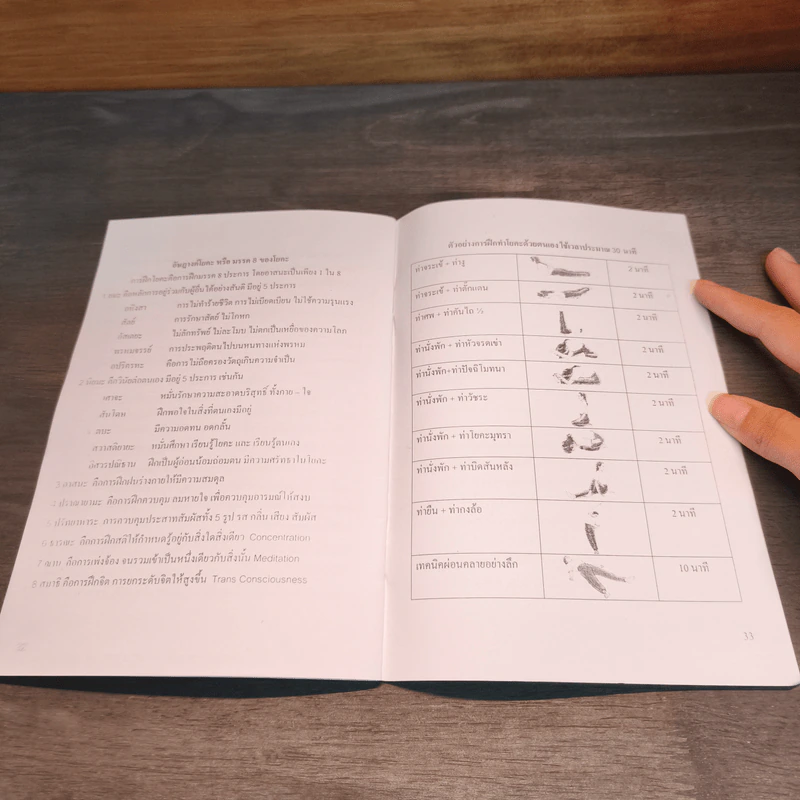 อัษฎางค์โยคะ หรือ มรรค 8 ของโยคะ
การฝึกโยคะคือการฝึกมรรค 8 ประการ โดยอาสนะเป็นเพียง 1 ใน 8
1 ยมะ คือหลักการอยู่ร่วมกับผู้อื่นได้อย่างสันติ มีอยู่ 5 ประการ
อหิงสา การไม่ทำร้ายชีวิต การไม่เบียดเบียน ไม่ใช้ความรุนแรง
สัตย์ การรักษาสัตย์ ไม่โกหก
อัสเตยะ ไม่ลักทรัพย์ ไม่ละโมบ ไม่ตกเป็นเหยื่อของความโลภ
พรหมจรรย์ การประพฤติตนไปบนหนทางแห่งพรหม
อปริเคราะห คือการไม่ถือครองวัตถุเกินความจำเป็น
2 นิยมะ คือวินัยต่อตนเอง มีอยู่ 5 ประการ เช่นกัน
เศาจะ หมั่นรักษาความสะอาดบริสุทธิ์ ทั้งกาย - ใจ
สันโดษ ฝึกพอใจในสิ่งที่ตนเองมีอยู่
ตบะ มีความอดทน อดกลั้น
สวาสธิยายะ หมั่นศึกษา เรียนรู้โยคะ และ เรียนรู้ตนเอง
อิศวรปณิธาน ฝึกเป็นผู้อ่อนน้อมถ่อมตน มีความศรัทธาในโยคะ
3 อาสนะ คือการฝึกฝนร่างกายให้มีความสมดุล
4 ปราณายามะ คือการฝึกควบคุม ลมหายใจ เพื่อควบคุมอารมณ์ให้สงบ
5 ปรัทยาหาระ การควบคุมประสาทสัมผัสทั้ง 5 รูป รส กลิ่น เสียง สัมผัส
6 ธารณะ คือการฝึกสติให้กำหนดรู้อยู่กับสิ่งใดสิ่งเดียว Concentration
7 ฌาน คือการเพ่งจ้อง จนรวมเข้าเป็นหนึ่งเดียวกับสิ่งนั้น Meditation
8 สมาธิ คือการฝึกจิต การยกระดับจิตให้สูงขึ้น Trans Consciousness
ตัวอย่างการฝึกทำโยคะด้วยตนเอง ใช้เวลาประมาณ 30 นาที
ท่าจระเข้ + ท่างู 2 นาที
ท่าจระเข้ + ท่าตั๊กแตน 2 นาที
ท่าศพ + ท่าคันไถ ½ 2 นาที
ท่านั่งพัก + ท่าหัวจรดเข่า 2 นาที
ท่านั่งพัก+ท่าปัจฉิโมทนา 2 นาที
ท่านั่งพัก + ท่าวัชระ 2 นาที
ท่านั่งพัก + ท่าโยคะมุทรา 2 นาที
ท่านั่งพัก + ท่าบิดสันหลัง 2 นาที
ท่ายืน + ท่ากงล้อ 2 นาที
เทคนิคผ่อนคลายอย่างลึก 10 นาที
33